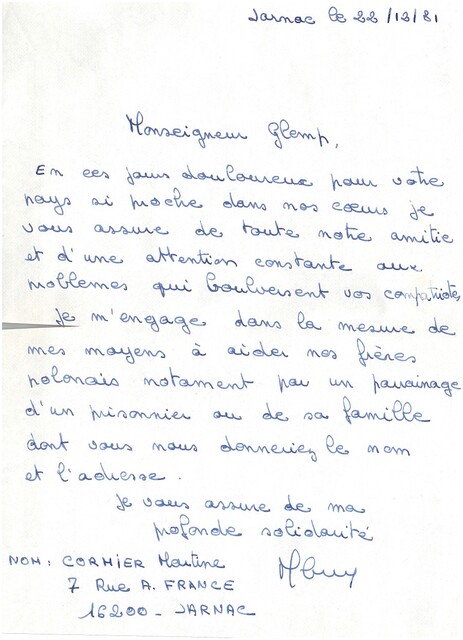 Jarnac le 22/12/81
Monseigneur Glemp,
En ces jours douloureux pour votre
pays si proche dans nos cœurs je
vous assure de toute notre amitié
et d'une attention constante aux
problemes qui boulversent vos compatriotes
Je m'engage dans la mesure de
mes moyens à aider nos frères
polonais notament par un parrainage
d'un prisonnier ou de sa famille
dont vous nous donneriez le nom
et l'adresse.
Je vous assure de ma
profonde solidarité
NOM: CORMIER Martine
7 Rue A. FRANCE
16200 - JARNAC